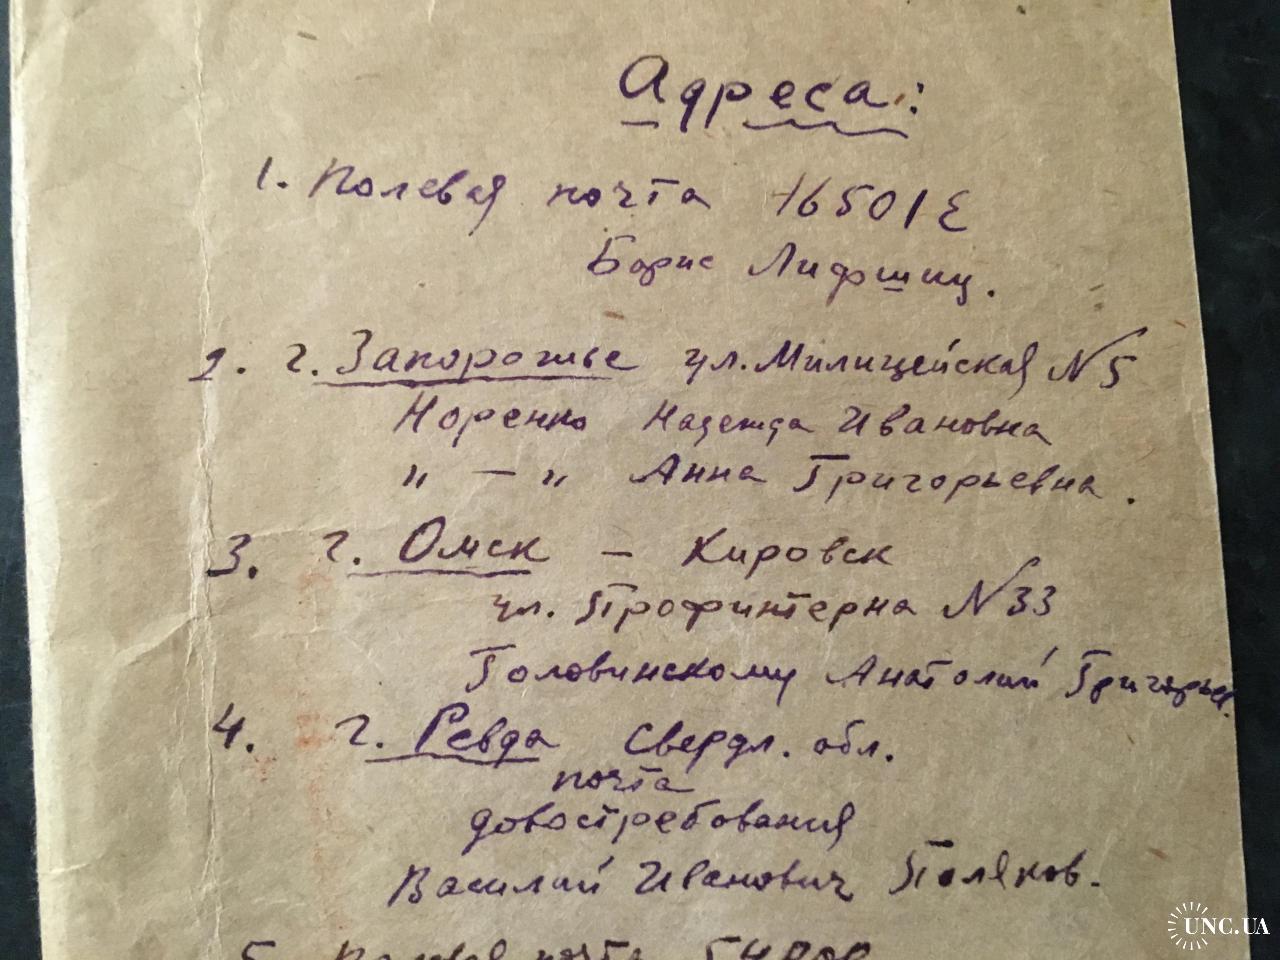 Адреса:
1. Полевая почта 16501 Е
Борис Лифшиц.
2. г. Запорожье ул. Милицейская №5
Норенко Надежда Ивановна
" — " Анна Григорьевна.
3. г. Омск — Кировск
ул. Профинтерна №33
Головинскому Анатолий Григорьев.
4. г. Ревда Свердл. обл.
почта
довостребования
Василий Иванович Поляков.
5. Полевая почта
UNC.UA